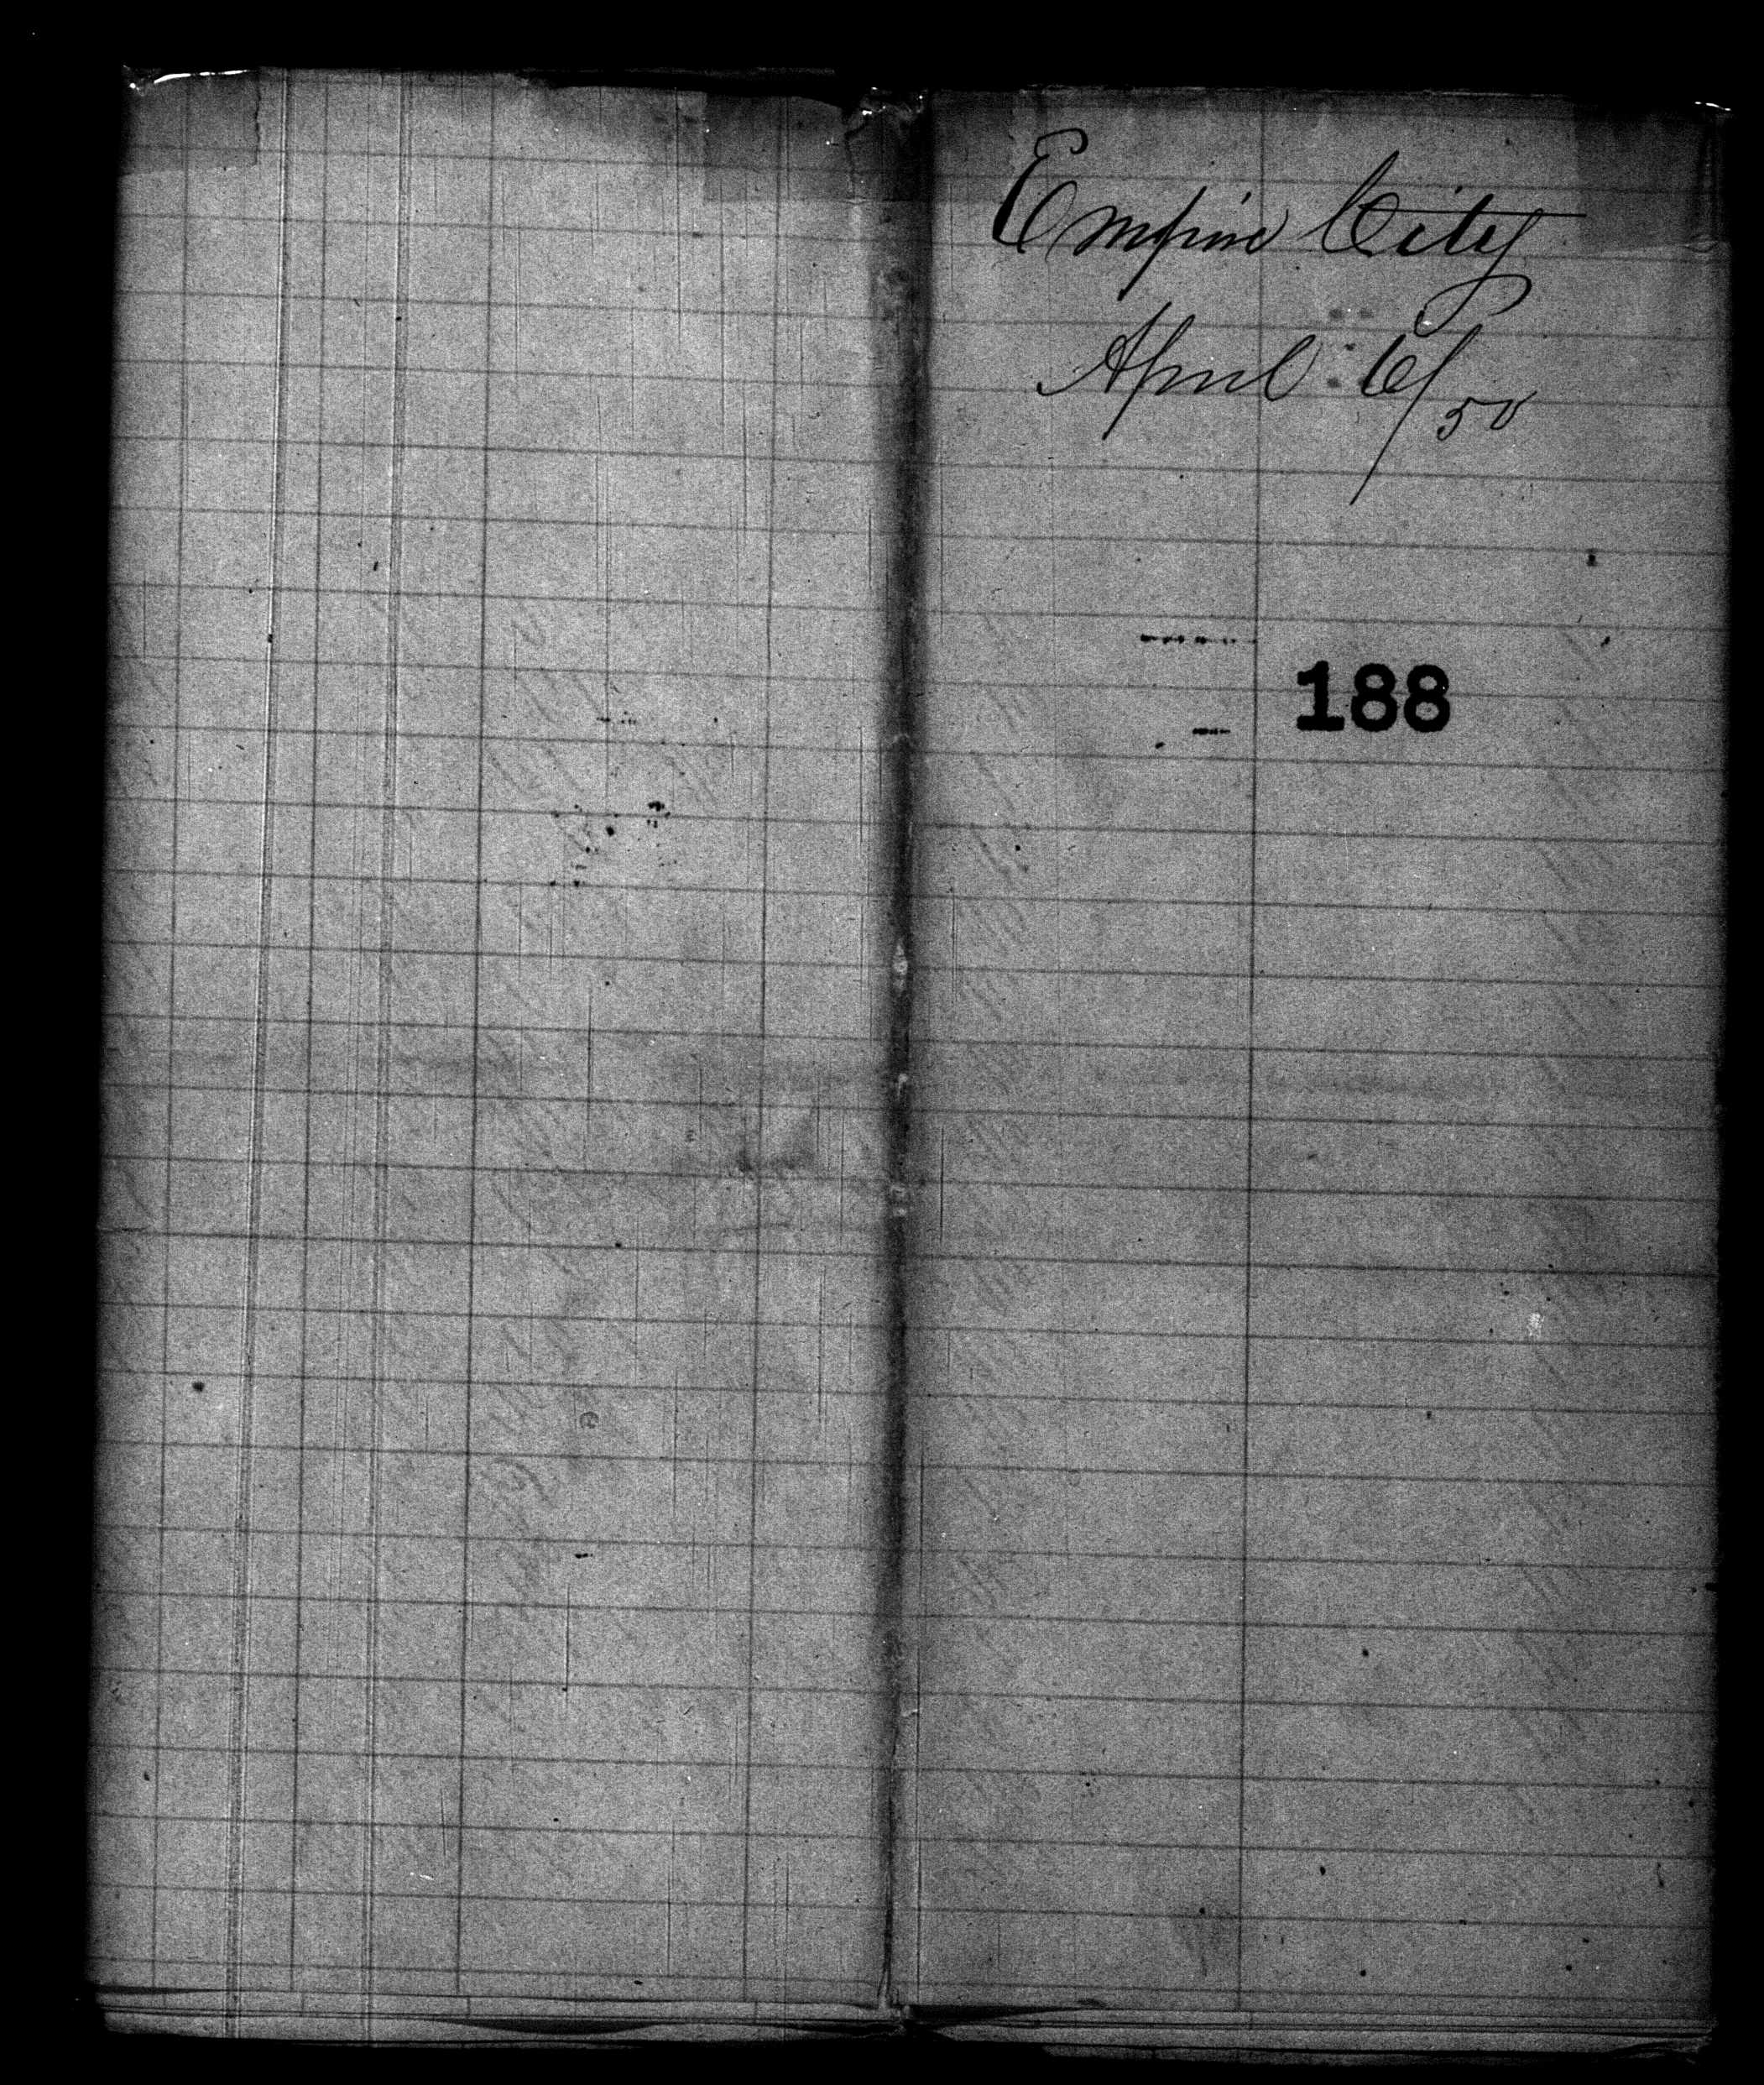 Empire City
April 6/50
188